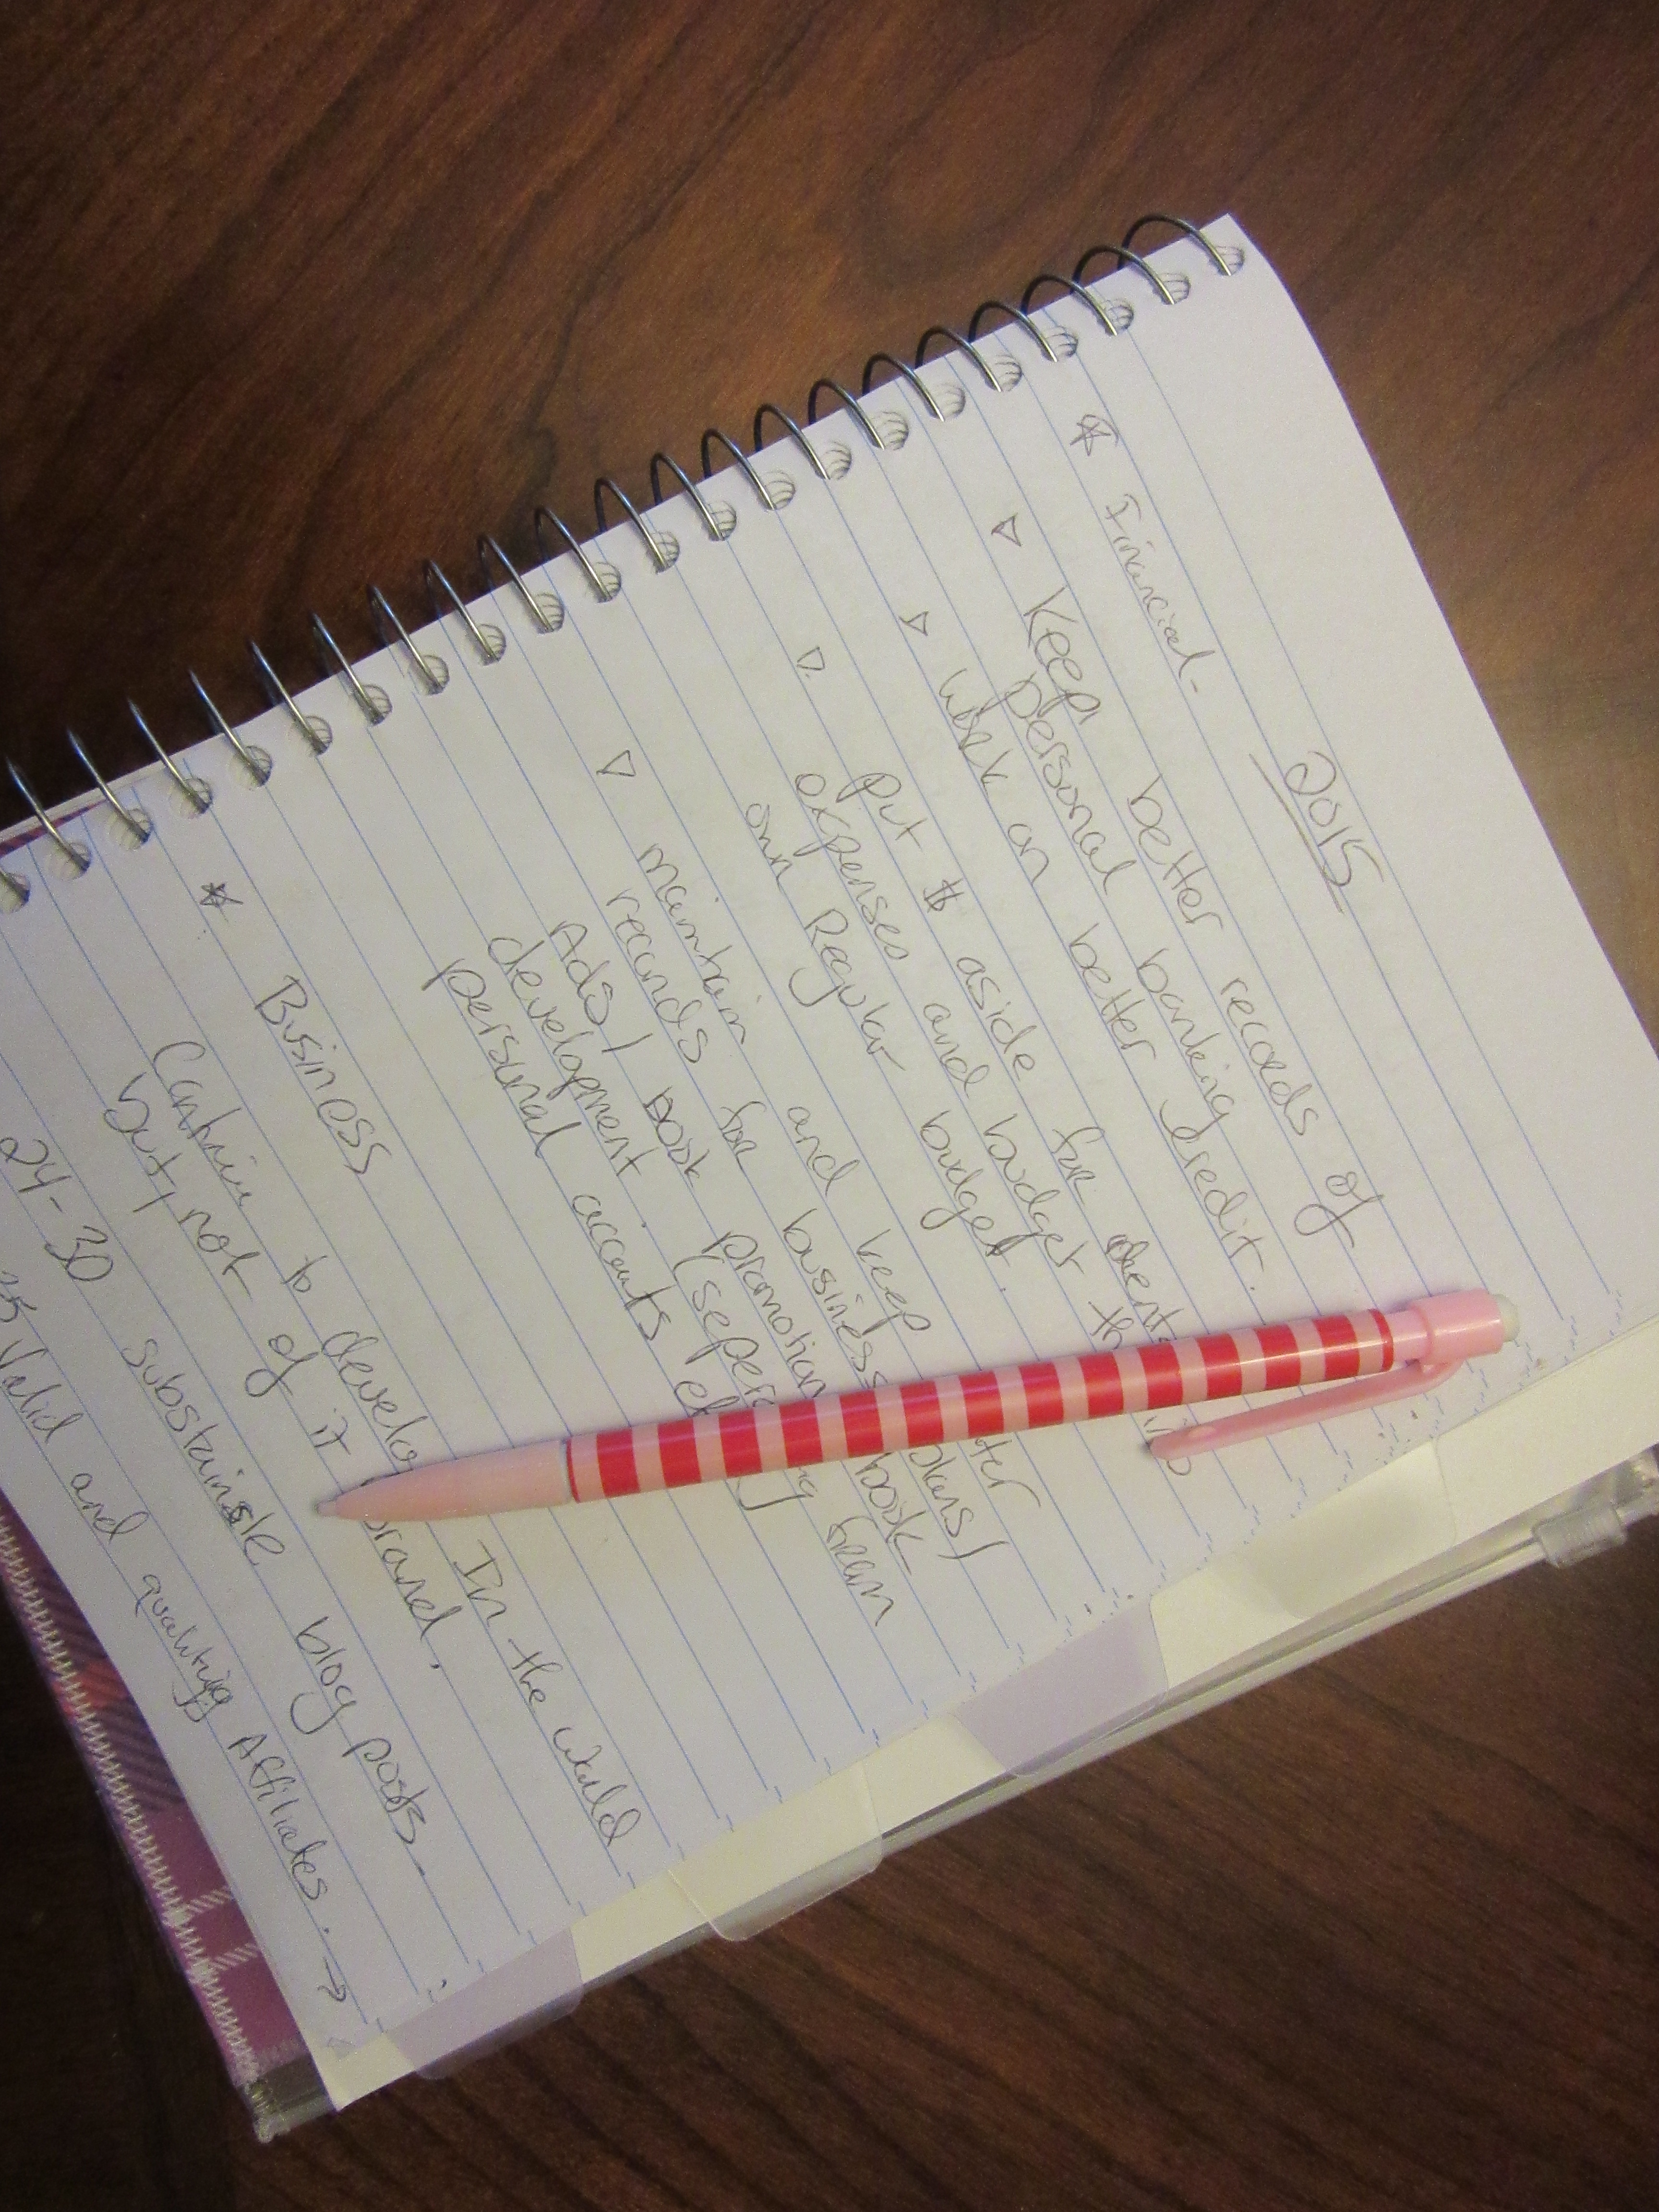 2015
☆ Financial -
▷ Keep better records of
personal banking
▷ Work on better credit.
▷ Put $ aside for
expenses and budget
own Regular budget.
▷ maintain and keep
records for business
Ads/ book promotion
development from
personal accounts
☆ Business
Continue to develop In the world
but, not of it brand.
24-30 substainable blog posts.
Valid and quality Affiliates. →